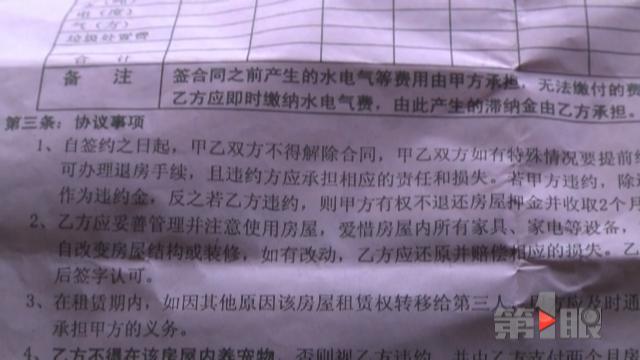 电（度）
气（方）
垃圾处置费
合 计
备 注
签合同之前产生的水电气等费用由甲方承担，无法缴付的费
乙方应即时缴纳水电气费，由此产生的滞纳金由乙方承担。
第三条：协议事项
1、自签约之日起，甲乙双方不得解除合同，甲乙双方如有特殊情况要提前终
可办理退房手续，且违约方应承担相应的责任和损失。若甲方违约，除退
作为违约金，反之若乙方违约，则甲方有权不退还房屋押金并收取2个月
2、乙方应妥善管理并注意使用房屋，爱惜房屋内所有家具、家电等设备，
自改变房屋结构或装修，如有改动，乙方应还原并赔偿相应的损失。乙
后签字认可。
3、在租赁期内，如因其他原因该房屋租赁权转移给第三人，方应及时通
承担甲方的义务。
4、乙方不得在该房屋内养宠物，否则视乙方违约，并由乙方
第1眼